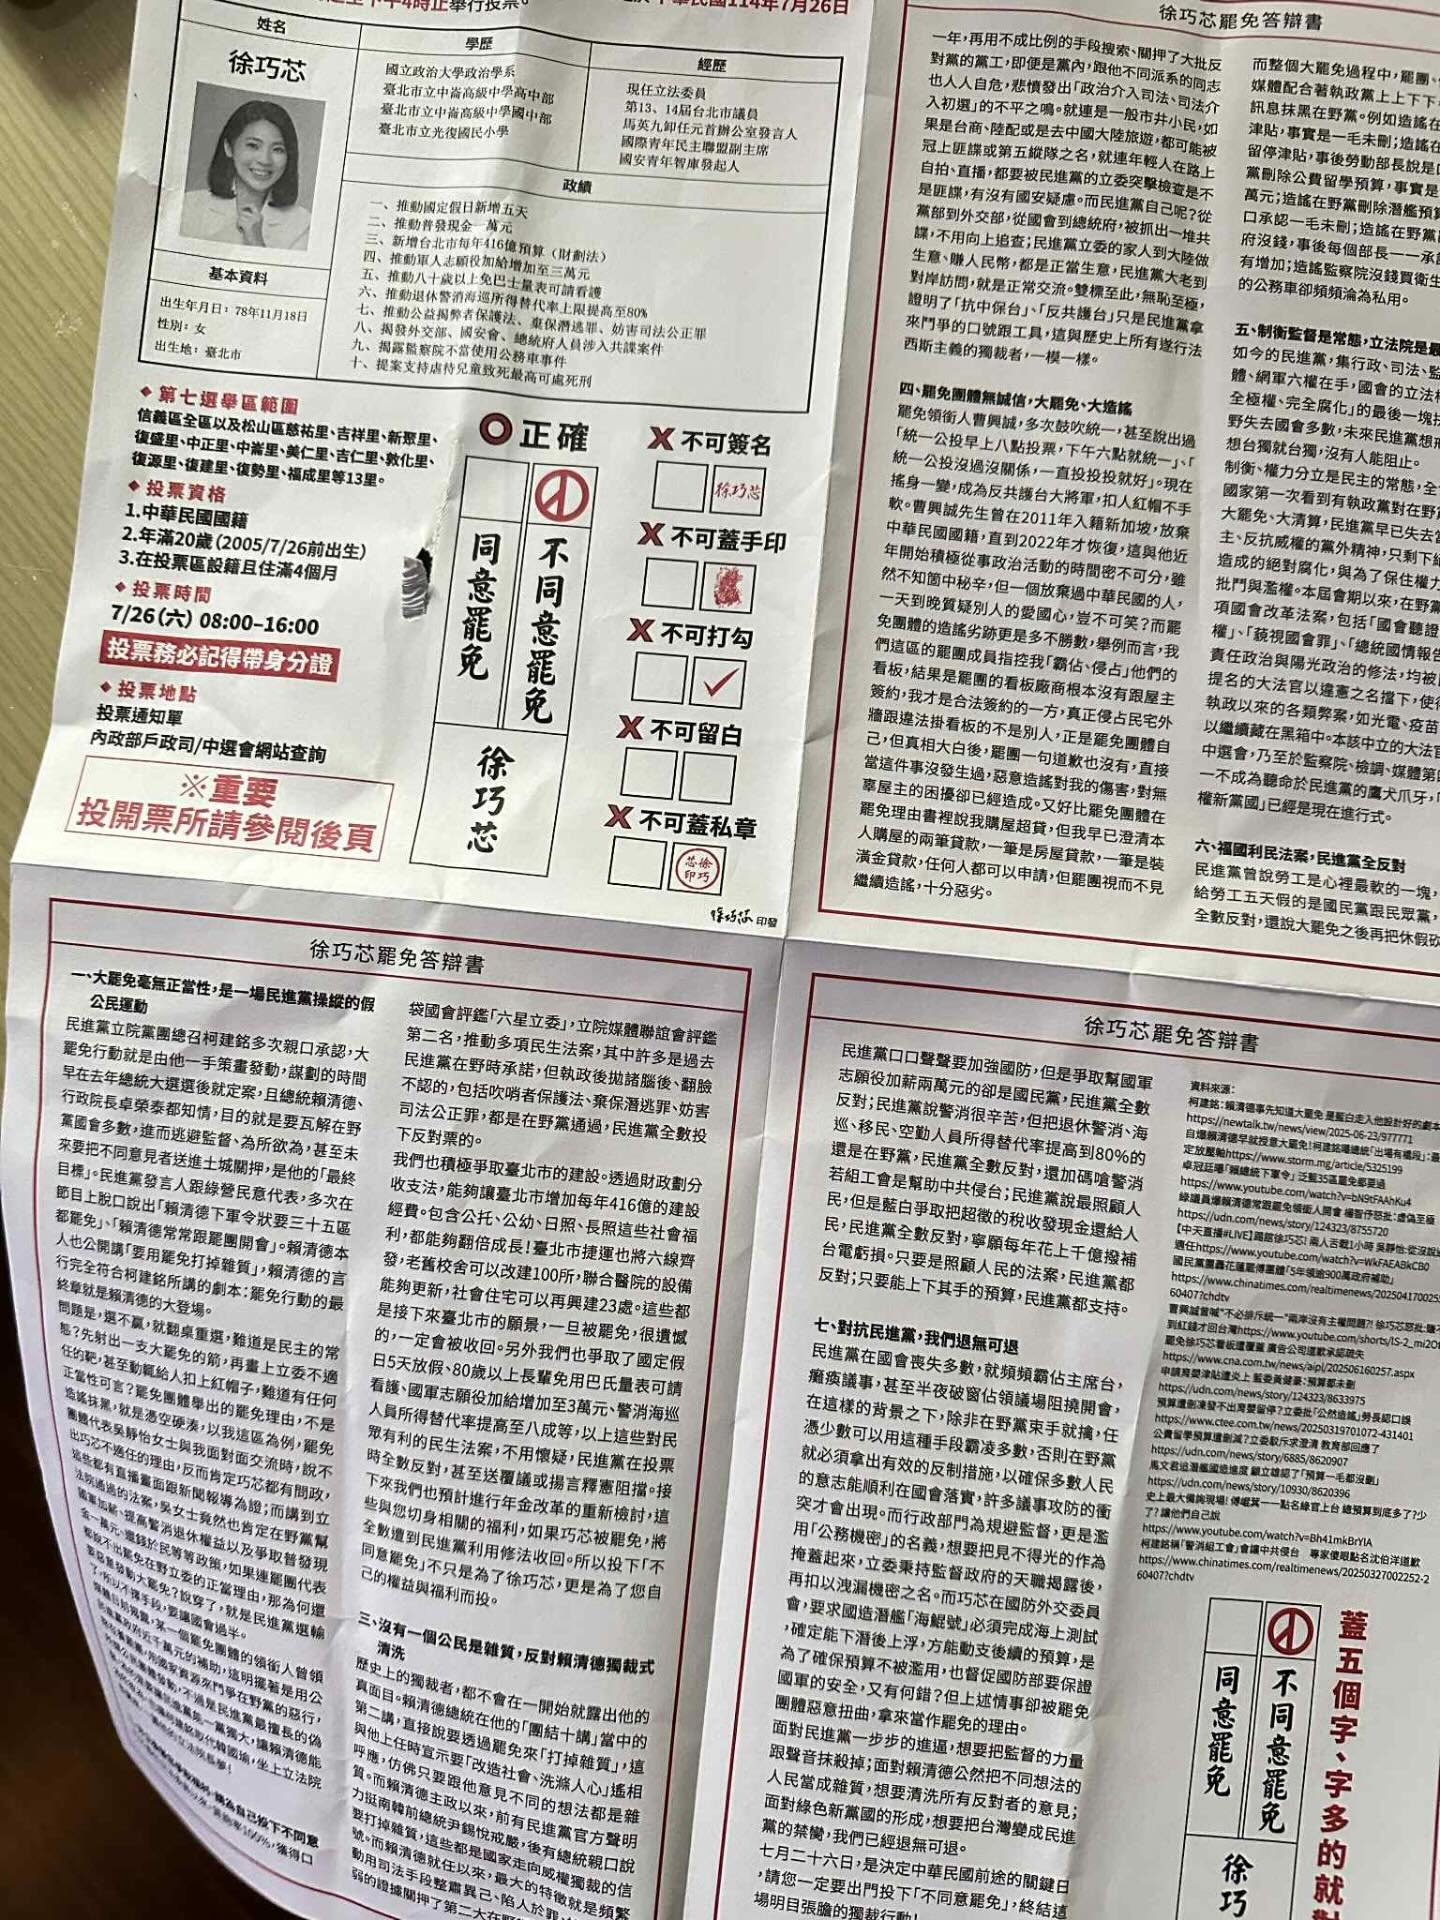 至下午4時止舉行投票。
中華民國114年7月26日
姓名
徐巧芯
基本資料
出生年月日：78年11月18日
性別：女
出生地：臺北市
學歷
國立政治大學政治學系
臺北市立中崙高級中學高中部
臺北市立中崙高級中學國中部
臺北市立光復國民小學
經歷
現任立法委員
第13、14屆台北市議員
馬英九卸任元首辦公室發言人
國際青年民主聯盟副主席
國安青年智庫發起人
政績
一、推動國定假日新增五天
二、推動普發現金一萬元
三、新增台北市每年416億預算（財劃法）
四、推動軍人志願役加給增加至三萬元
五、推動八十歲以上免巴士量表可請看護
六、推動退休警消海巡所得替代率上限提高至80%
七、推動公益揭弊者保護法、棄保潛逃罪、妨害司法公正罪
八、揭發外交部、國安會、總統府人員涉入共諜案件
九、揭露監察院不當使用公務車事件
十、提案支持虐待兒童致死最高可處死刑
◆第七選舉區範圍
信義區全區以及松山區慈祐里、吉祥里、新聚里、
復盛里、中正里、中崙里、美仁里、吉仁里、敦化里、
復源里、復建里、復勢里、福成里等13里。
◆投票資格
1.中華民國國籍
2.年滿20歲（2005/7/26前出生）
3.在投票區設籍且住滿4個月
◆投票時間
7/26(六) 08:00–16:00
投票務必記得帶身分證
◆投票地點
投票通知單
內政部戶政司/中選會網站查詢
※重要
投開票所請參閱後頁
正確
同意罷免
不同意罷免
徐巧芯
X 不可簽名
徐巧芯
X 不可蓋手印
X 不可打勾
X 不可留白
X 不可蓋私章
徐巧芯印
徐巧芯 印發
徐巧芯罷免答辯書
一年，再用不成比例的手段搜索、關押了大批反
對黨的黨工，即便是黨內，跟他不同派系的同志
也人人自危，悲憤發出「政治介入司法、司法介
入初選」的不平之鳴。就連是一般市井小民，如
果是台商、陸配或是去中國大陸旅遊，都可能被
冠上匪諜或第五縱隊之名，就連年輕人在路上
自拍、直播，都要被民進黨的立委突擊檢查是不
是匪諜，有沒有國安疑慮。而民進黨自己呢？從
黨部到外交部，從國會到總統府，被抓出一堆共
諜，不用向上追查；民進黨立委的家人到大陸做
生意、賺人民幣，都是正當生意，民進黨大老到
對岸訪問，就是正常交流。雙標至此，無恥至極，
證明了「抗中保台」、「反共護台」只是民進黨拿
來鬥爭的口號跟工具，這與歷史上所有遂行法
西斯主義的獨裁者，一模一樣。
四、罷免團體無誠信，大罷免、大造謠
罷免領銜人曹興誠，多次鼓吹統一，甚至說出過
「統一公投早上八點投票，下午六點就統一」、「
統一公投沒過沒關係，一直投投投就好」。現在
搖身一變，成為反共護台大將軍，扣人紅帽不手
軟。曹興誠先生曾在2011年入籍新加坡，放棄
中華民國國籍，直到2022年才恢復，這與他近
年開始積極從事政治活動的時間密不可分，雖
然不知箇中秘辛，但一個放棄過中華民國的人，
一天到晚質疑別人的愛國心，豈不可笑？而罷
免團體的造謠劣跡更是多不勝數，舉例而言，我
們這區的罷團成員指控我「霸佔、侵占」他們的
看板，結果是罷團的看板廠商根本沒有跟屋主
簽約，我才是合法簽約的一方，真正侵占民宅外
牆跟違法掛看板的不是別人，正是罷免團體自
己，但真相大白後，罷團一句道歉也沒有，直接
當這件事沒發生過，惡意造謠對我的傷害，對無
辜屋主的困擾卻已經造成。又好比罷免團體在
罷免理由書裡說我購屋超貸，但我早已澄清本
人購屋的兩筆貸款，一筆是房屋貸款，一筆是裝
潢金貸款，任何人都可以申請，但罷團視而不見
繼續造謠，十分惡劣。
而整個大罷免過程中，罷團、
媒體配合著執政黨上上下下，
訊息抹黑在野黨。例如造謠在
津貼，事實是一毛未刪；造謠在
留停津貼，事後勞動部長說是口
黨刪除公費留學預算，事實是
萬元；造謠在野黨刪除潛艦預算
口承認一毛未刪；造謠在野黨
府沒錢，事後每個部長一一承
有增加；造謠監察院沒錢買衛生
的公務車卻頻頻淪為私用。
五、制衡監督是常態，立法院是最
如今的民進黨，集行政、司法、監
體、網軍六權在手，國會的立法權
全極權、完全腐化」的最後一塊拼
野失去國會多數，未來民進黨想戒
想台獨就台獨，沒有人能阻止。
制衡、權力分立是民主的常態，全
國家第一次看到有執政黨對在野
大罷免、大清算，民進黨早已失去當
主、反抗威權的黨外精神，只剩下絕
造成的絕對腐化，與為了保住權力
批鬥與濫權。本屆會期以來，在野黨
項國會改革法案，包括「國會聽證
權」、「藐視國會罪」、「總統國情報告
責任政治與陽光政治的修法，均被
提名的大法官以違憲之名擋下，使得
執政以來的各類弊案，如光電、疫苗
以繼續藏在黑箱中。本該中立的大法官
中選會，乃至於監察院、檢調、媒體第四
一不成為聽命於民進黨的鷹犬爪牙，「
權新黨國」已經是現在進行式。
六、福國利民法案，民進黨全反對
民進黨曾說勞工是心裡最軟的一塊，
給勞工五天假的是國民黨跟民眾黨，
全數反對，還說大罷免之後再把休假砍
徐巧芯罷免答辯書
一、大罷免毫無正當性，是一場民進黨操縱的假
公民運動
民進黨立院黨團總召柯建銘多次親口承認，大
罷免行動就是由他一手策畫發動，謀劃的時間
早在去年總統大選選後就定案，且總統賴清德、
行政院長卓榮泰都知情，目的就是要瓦解在野
黨國會多數，進而逃避監督、為所欲為，甚至未
來要把不同意見者送進土城關押，是他的「最終
目標」。民進黨發言人跟綠營民意代表，多次在
節目上脫口說出「賴清德下軍令狀要三十五區
都罷免」、「賴清德常常跟罷團開會」。賴清德本
人也公開講「要用罷免打掉雜質」，賴清德的言
行完全符合柯建銘所講的劇本：罷免行動的最
終章就是賴清德的大登場。
問題是，選不贏，就翻桌重選，難道是民主的常
態？先射出一支大罷免的箭，再畫上立委不適
任的靶，甚至動輒給人扣上紅帽子，難道有任何
正當性可言？罷免團體舉出的罷免理由，不是
造謠抹黑，就是憑空硬湊，以我這區為例，罷免
團體代表吳靜怡女士與我面對面交流時，說不
出巧芯不適任的理由，反而肯定巧芯都有問政，
這些都有直播畫面跟新聞報導為證；而講到立
法院通過的法案，吳女士竟然也肯定在野黨幫
國軍加薪、提高警消退休權益以及爭取普發現
金一萬元、還錢於民等等政策，如果連罷團代表
都說不出罷免在野立委的正當理由，那為何還
要惡意發動大罷免？說穿了，就是民進黨選輸
了，所以不擇手段，要讓國會過半。
袋國會評鑑「六星立委」，立院媒體聯誼會評鑑
第二名，推動多項民生法案，其中許多是過去
民進黨在野時承諾，但執政後拋諸腦後、翻臉
不認的，包括吹哨者保護法、棄保潛逃罪、妨害
司法公正罪，都是在野黨通過，民進黨全數投
下反對票的。
我們也積極爭取臺北市的建設。透過財政劃分
收支法，能夠讓臺北市增加每年416億的建設
經費。包含公托、公幼、日照、長照這些社會福
利，都能夠翻倍成長！臺北市捷運也將六線齊
發，老舊校舍可以改建100所，聯合醫院的設備
能夠更新，社會住宅可以再興建23處。這些都
是接下來臺北市的願景，一旦被罷免，很遺憾
的，一定會被收回。另外我們也爭取了國定假
日5天放假、80歲以上長輩免用巴氏量表可請
看護、國軍志願役加給增加至3萬元、警消海巡
人員所得替代率提高至八成等，以上這些對民
眾有利的民生法案，不用懷疑，民進黨在投票
時全數反對，甚至送覆議或揚言釋憲阻擋。接
下來我們也預計進行年金改革的重新檢討，這
些與您切身相關的福利，如果巧芯被罷免，將
全數遭到民進黨利用修法收回。所以投下「不
同意罷免」不只是為了徐巧芯，更是為了您自
己的權益與福利而投。
三、沒有一個公民是雜質，反對賴清德獨裁式
清洗
歷史上的獨裁者，都不會在一開始就露出他的
真面目。賴清德總統在他的「團結十講」當中的
第二講，直接說要透過罷免來「打掉雜質」，這
與他上任時宣示要「改造社會、洗滌人心」遙相
呼應，彷彿只要跟他意見不同的想法都是雜
質。而賴清德主政以來，前有民進黨官方聲明
力挺南韓前總統尹錫悅戒嚴，後有總統親口說
要打掉雜質，這些都是國家走向威權獨裁的信
號。而賴清德就任以來，最大的特徵就是頻繁
動用司法手段整肅異己、陷人於罪
弱的證據關押了第二大在野
徐巧芯罷免答辯書
民進黨口口聲聲要加強國防，但是爭取幫國軍
志願役加薪兩萬元的卻是國民黨，民進黨全數
反對；民進黨說警消很辛苦，但把退休警消、海
巡、移民、空勤人員所得替代率提高到80%的
還是在野黨，民進黨全數反對，還加碼嗆警消
若組工會是幫助中共侵台；民進黨說最照顧人
民，但是藍白爭取把超徵的稅收發現金還給人
民，民進黨全數反對，寧願每年花上千億撥補
台電虧損。只要是照顧人民的法案，民進黨都
反對；只要能上下其手的預算，民進黨都支持。
七、對抗民進黨，我們退無可退
民進黨在國會喪失多數，就頻頻霸佔主席台，
癱瘓議事，甚至半夜破窗佔領議場阻撓開會，
在這樣的背景之下，除非在野黨束手就擒，任
憑少數可以用這種手段霸凌多數，否則在野黨
就必須拿出有效的反制措施，以確保多數人民
的意志能順利在國會落實，許多議事攻防的衝
突才會出現。而行政部門為規避監督，更是濫
用「公務機密」的名義，想要把見不得光的作為
掩蓋起來，立委秉持監督政府的天職揭露後，
再扣以洩漏機密之名。而巧芯在國防外交委員
會，要求國造潛艦「海鯤號」必須完成海上測試
，確定能下潛後上浮，方能動支後續的預算，是
為了確保預算不被濫用，也督促國防部要保證
國軍的安全，又有何錯？但上述情事卻被罷免
團體惡意扭曲，拿來當作罷免的理由。
面對民進黨一步步的進逼，想要把監督的力量
跟聲音抹殺掉；面對賴清德公然把不同想法的
人民當成雜質，想要清洗所有反對者的意見；
面對綠色新黨國的形成，想要把台灣變成民進
黨的禁臠，我們已經退無可退。
七月二十六日，是決定中華民國前途的關鍵日
，請您一定要出門投下「不同意罷免」，終結這
場明目張膽的獨裁行動！
資料來源：
柯建銘：賴清德事先知道大罷免 是藍白走入他設計好的劇本
https://newtalk.tw/news/view/2025-06-23/977771
自爆賴清德早就授意大罷免！柯建銘曝總統「出場有橋段」：最
定放壓軸https://www.storm.mg/article/5325199
卓冠廷曝「賴總統下軍令」 泛藍35區罷免都要過
https://www.youtube.com/watch?v=bN9tFAAhKu4
綠議員爆賴清德常跟罷免領銜人開會 楊智伃怒批：虛偽至極
https://udn.com/news/story/124323/8755720
https://www.youtube.com/watch?v=WkFAEABkCB0
國民黨團轟花蓮罷傅團體「5年領逾900萬政府補助」
https://www.chinatimes.com/realtimenews/2025041700255
60407?chdtv
到紅錢才回台灣https://www.youtube.com/shorts/IS-2_mi2O
罷免徐巧芯看板遭覆蓋 廣告公司道歉承認疏失
https://www.cna.com.tw/news/aipl/202506160257.aspx
申請育嬰津貼遭炎上 藍委黃健豪：預算都未刪
https://udn.com/news/story/124323/8633975
預算遭刪凍發不出育嬰留停？立委批「公然造謠」勞長認口誤
https://www.ctee.com.tw/news/20250319701072-431401
公費留學預算遭刪減？立委駁斥求澄清 教育部回應了
https://udn.com/news/story/6885/8620907
馬文君追潛艦國造進度 顧立雄認了「預算一毛都沒刪」
https://udn.com/news/story/10930/8620396
史上最大備詢現場！傅崐萁一一點名綠官上台 總預算到底多了？少
了？讓他們自己說
https://www.youtube.com/watch?v=Bh41mkBrYlA
柯建銘稱「警消組工會」會讓中共侵台 專家傻眼點名沈伯洋道歉
https://www.chinatimes.com/realtimenews/20250327002252-2
60407?chdtv
同意罷免
不同意罷免
徐巧
蓋五個字、字多的就對